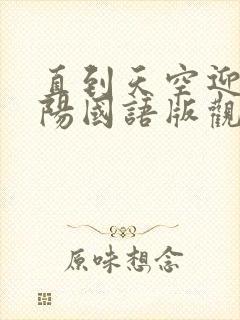 直到天空迎
陽國語版觀
原味想念